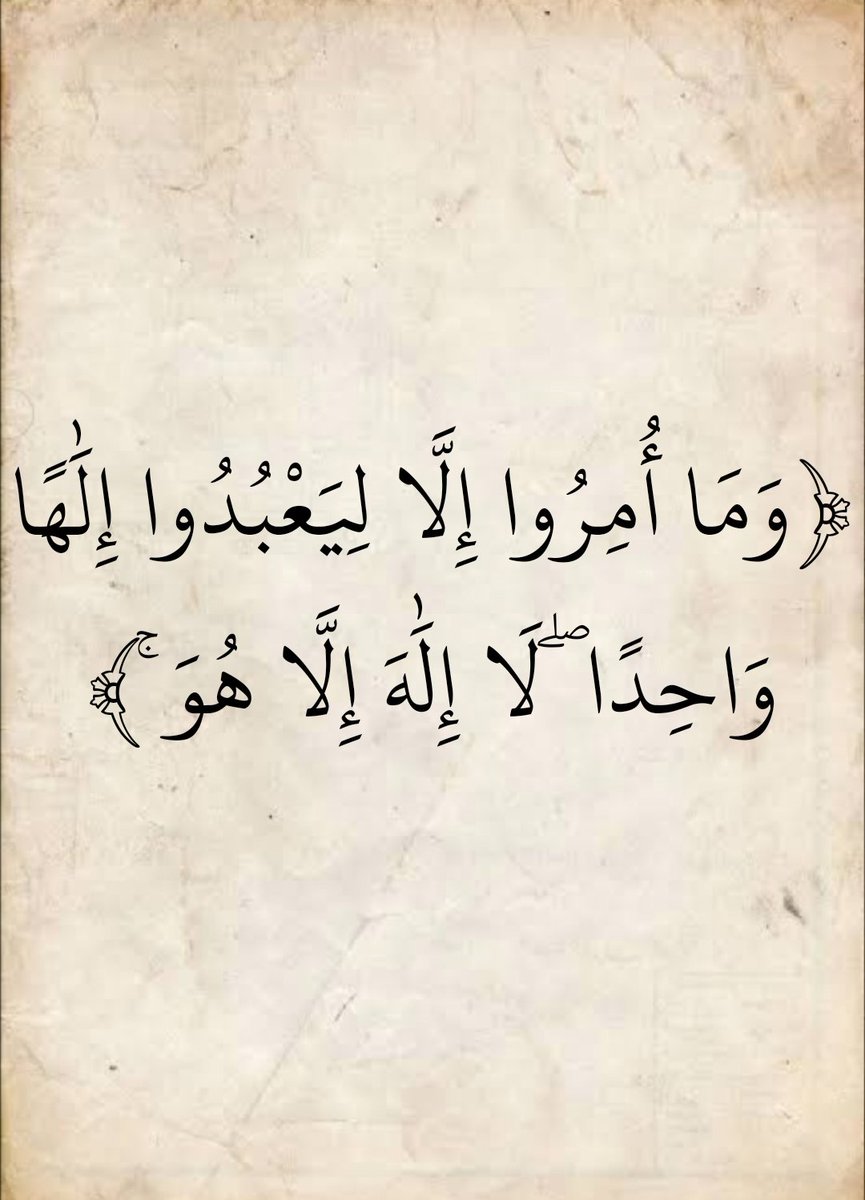 ﴿وَمَا أُمِرُوا إِلَّا لِيَعْبُدُوا إِلَٰهًا
وَاحِدًا ۖ لَا إِلَٰهَ إِلَّا هُوَ ۚ﴾